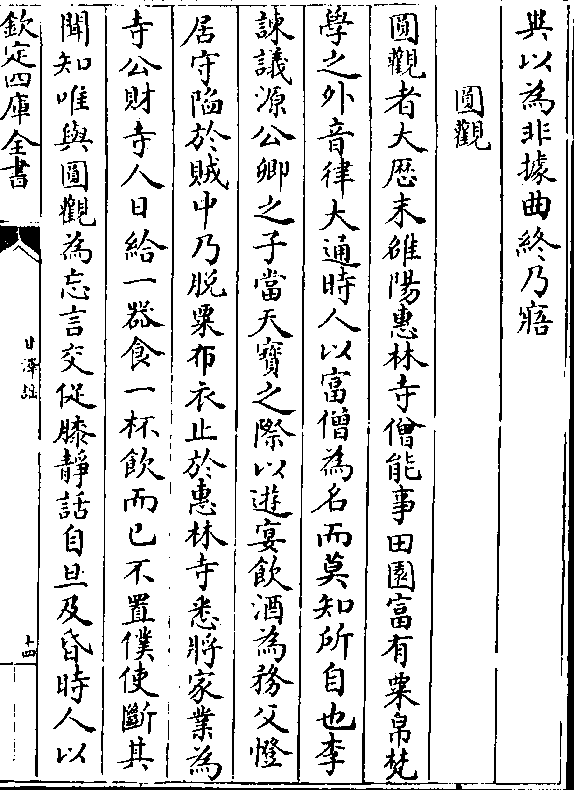 與以為非據曲終乃寤
圓觀
圓觀者大厯末雒陽惠林寺僧能事田園富有粟帛梵
學之外音律大通時人以富僧為名而莫知所自也李
諫議源公卿之子當天寶之際以遊宴飲酒為務父憕
居守陥於賊中乃脱粟布衣止於惠林寺悉將家業為
寺公財寺人日給一器食一杯飲而已不置僕使斷其
聞知唯與圓觀為忘言交促膝靜話自旦及昏時人以
欽定四庫全書
甘澤謡
十四